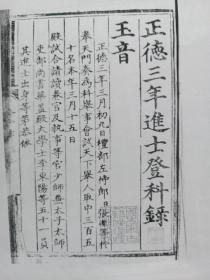 正德三年進士登科錄
玉音
正德三年三月初九日禮部左侍郎臣張等於
奉天門奏為科舉事會試天下舉人取中三百五
十名本年三月十五日
殿試合請讀卷官及執事等官少師兼太子太師
吏部尚書華蓋殿大學士李東陽等五十一員
其進士出身等第恭依